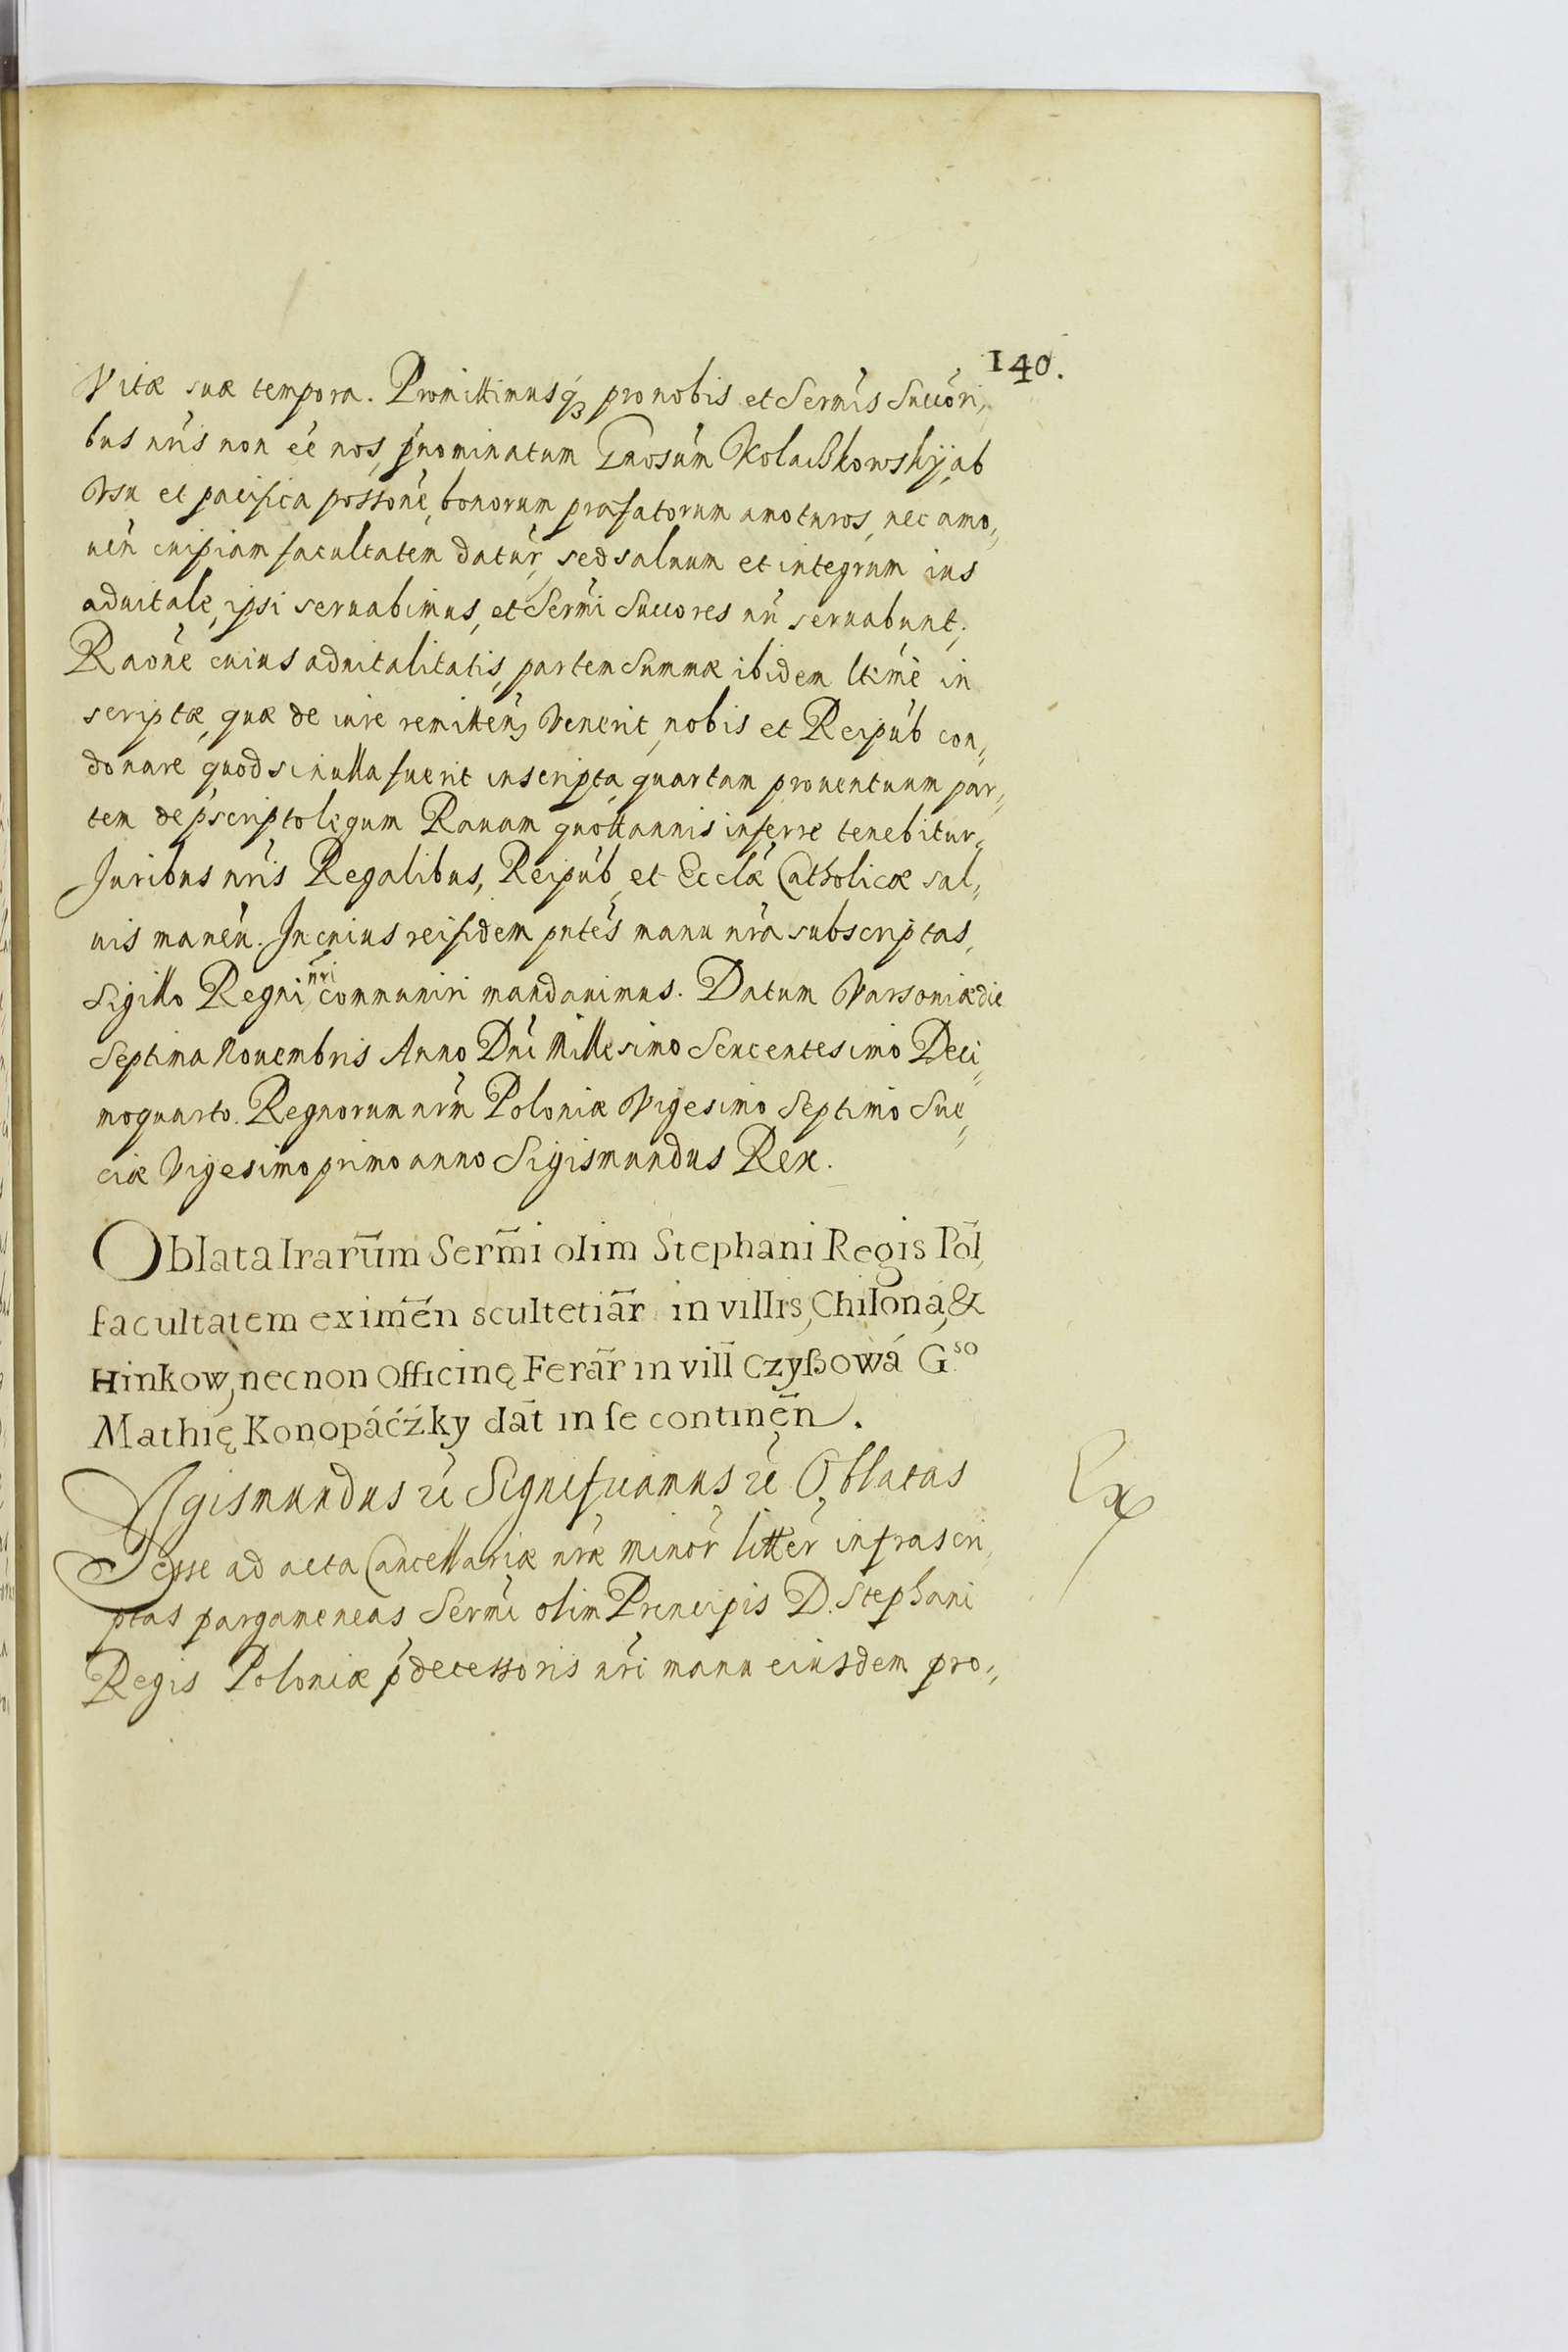 140.
Vitæ suæ tempora. Promittimusq́ꝫ pro nobis et Serm̃is Succõri,
bus nr̃is non eẽ nos, p̃nominatum Gnosũm Kolaczkowsky, ab
Vsu et pacifica possonẽ, bonorum præfatorum amoturos, nec amo„
uen̄ cuipiam facultatem datur̃, sed saluum et integrum ius
aduitale, ipsi seruabimus, et Serm̃i Succores nr̃i seruabunt.
Raonẽ cuius aduitalitatis, partem Summæ ibidem ltimẽ in
scriptæ, quæ de iure remitten̄ Venerit, nobis et Reipub̃ con„
donare, quod si nulla fuerit inscripta, quartam prouentuum par„
tem de p̃scripto legum Rauam quottannis inferre tenebitur„
Juribus nr̃is Regalibus, Reipub̃ et Ecclæ̃ Catholicæ sal„
uis manen̄. In cuius rei fidem pntẽs manu nr̃a subscriptas,
Sigillo Regni nr̃i communiri mandauimus. Datum Varsouiæ die
Septima Nouembris Anno Dnĩ Millesimo Sexcentesimo Deci„
moquarto. Regnorum nrm̃ Poloniæ Vigesimo Septimo Sue„
ciæ Vigesimo primo anno Sigismundus Rex.
Oblata lrarũm Serm̃i olim Stephani Regis Pol̃,
facultatem eximen̄ scultetiar̃ in villis, Chilona, &
Hinkow, necnon Officinę Ferar̃ in vill̃ Czyßowá G.so
Mathię Konopáćźky dat̃ in se continẽn.
Sigismundus ꝛẽ Significamus ꝛẽ Oblatas
esse ad acta Cancellariæ nr̃æ minor̃ litter̃ infrascri,
ptas pargameneas Serm̃i olim Principis D. Stephani
Regis Poloniæ p̃decessoris nr̃i manu eiusdem pro„
Ex